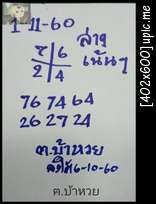 1-11-60
ล่าง
เน้นๆ
8 6
2 4
76 74 64
26 27 24
ฅ.บ้าหวย
6-10-60
ฅ.บ้าหวย
[402x600] upic.me